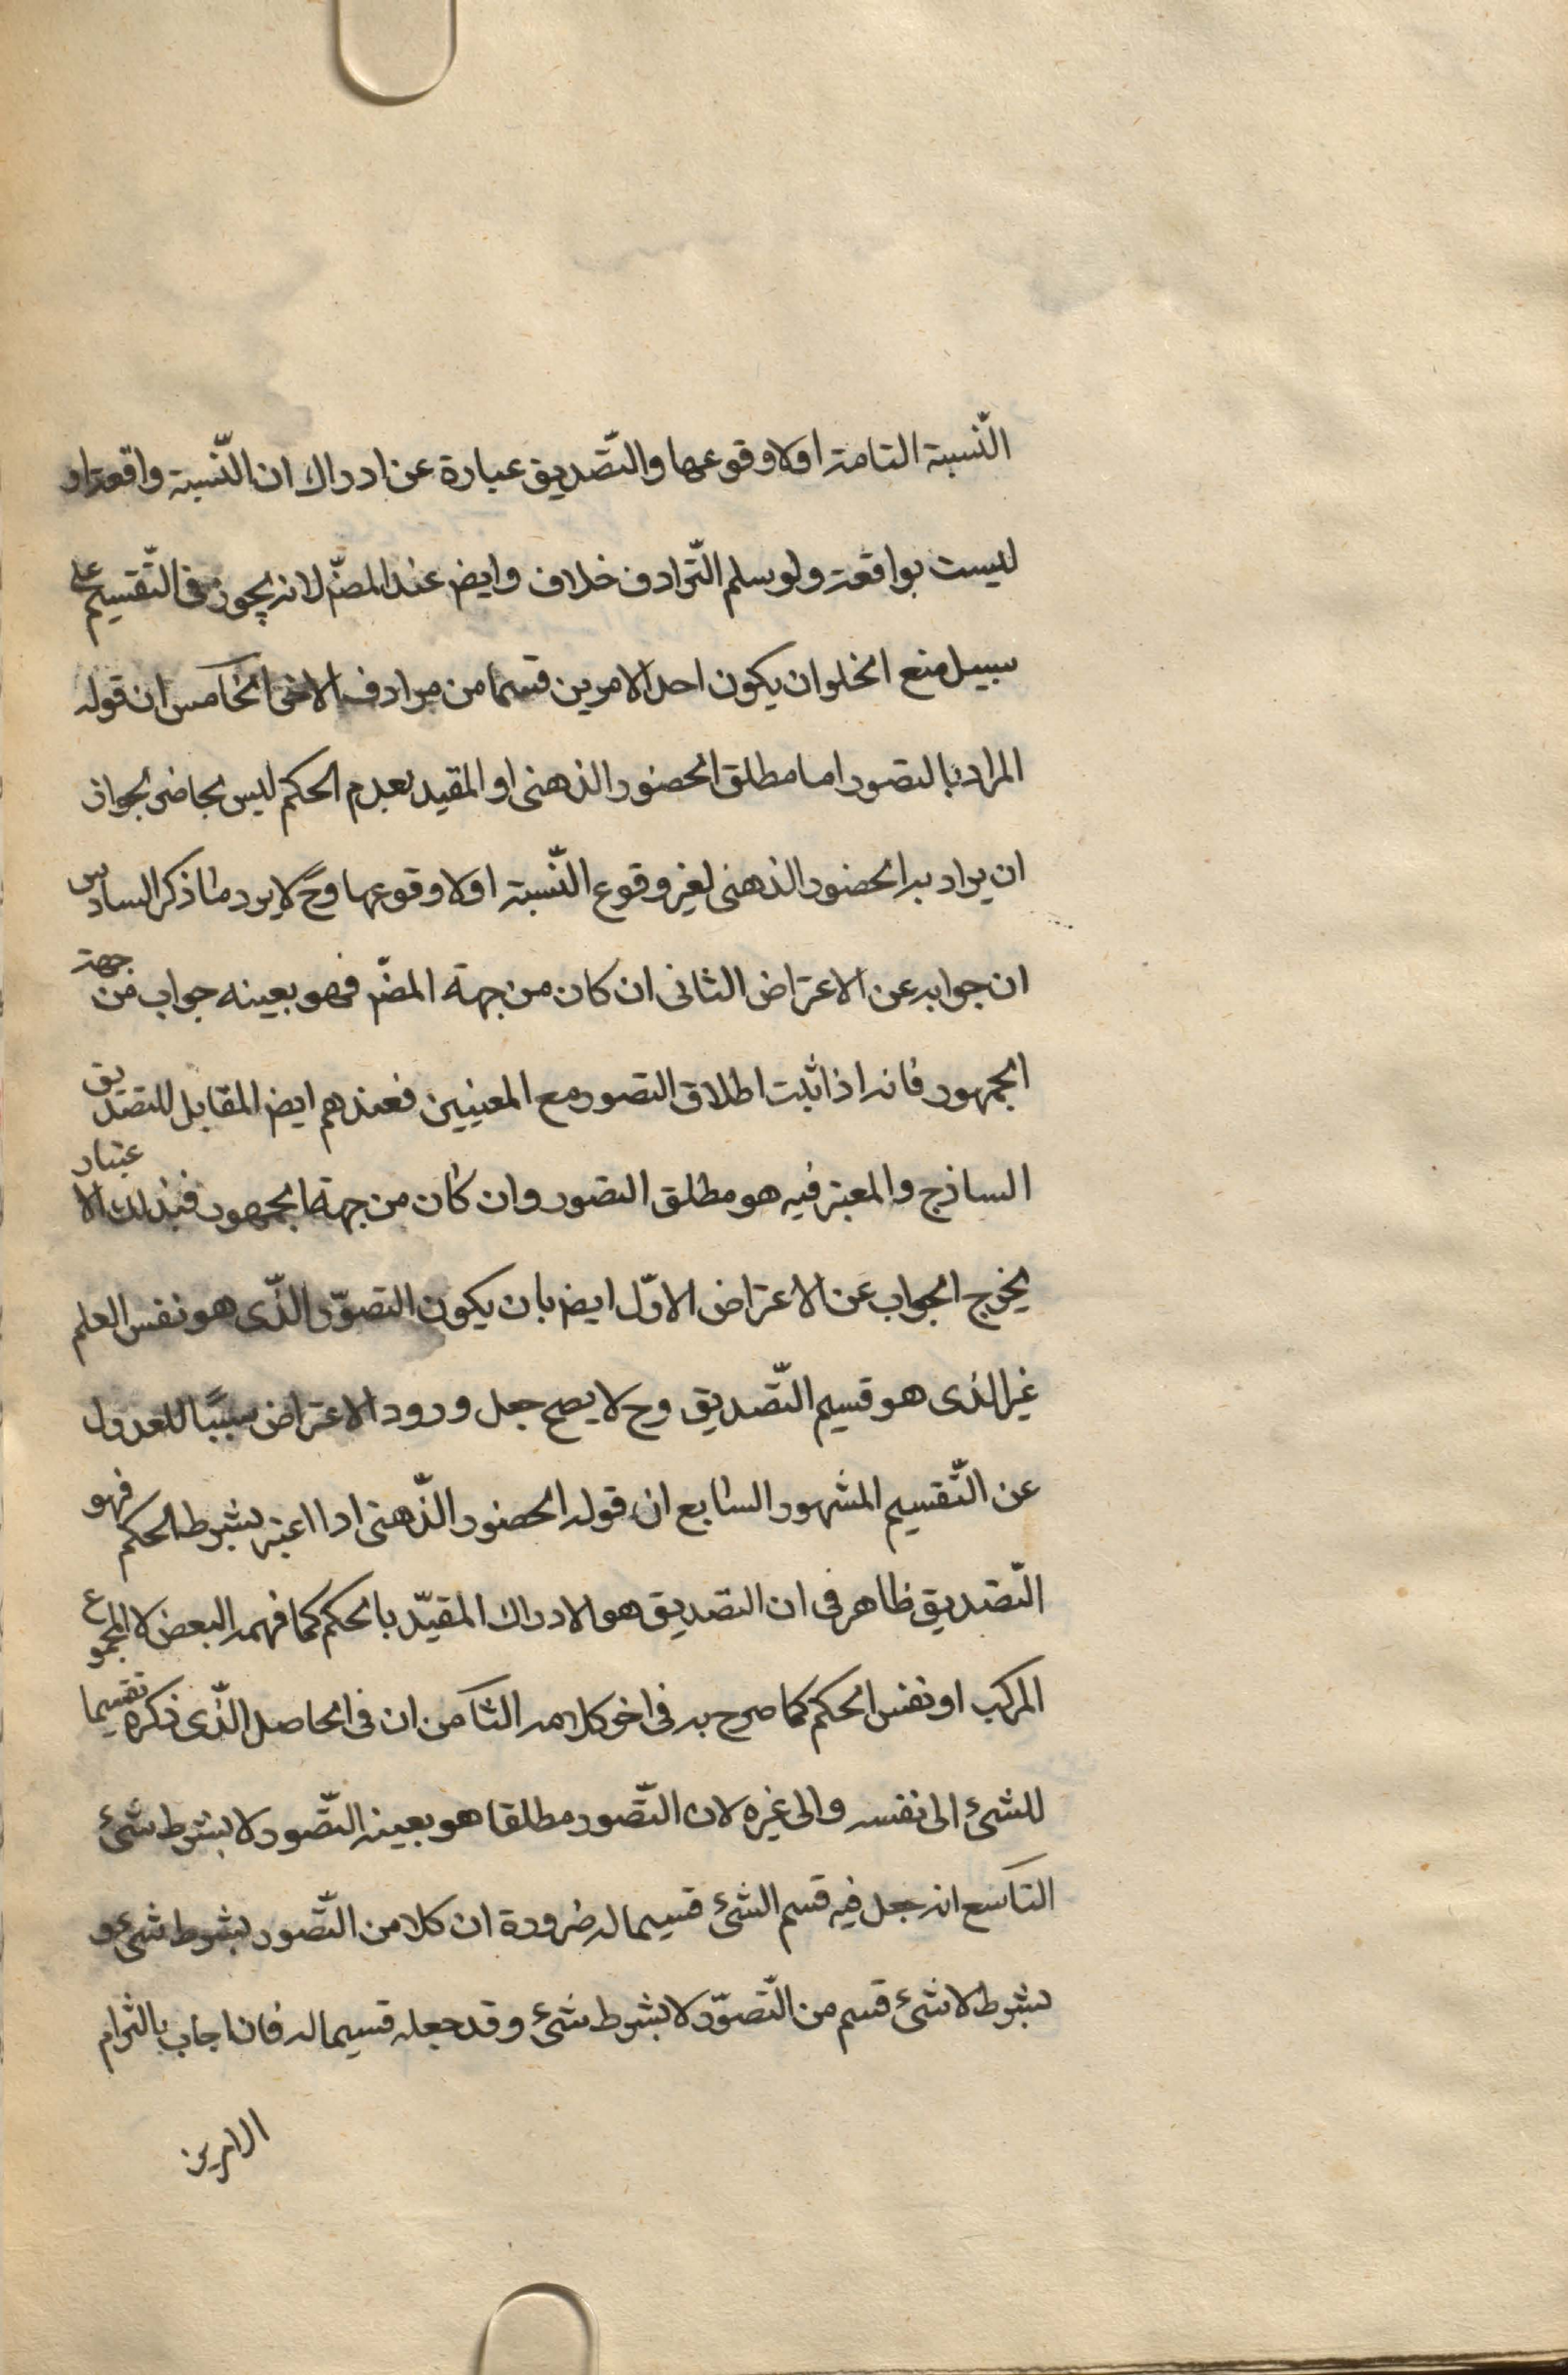 النّسبة التامة اولا وقوعها والتّصديق عبارة عن ادراك ان النّسبة واقعة او
ليست بواقعة ولو سلم التّرادف خلاف وايض عند المصّ لانه يجوز في التّقسيم على
سبيل منع الخلو ان يكون احد الامرين قسما من مرادف الاخر الخامس ان قوله
المراد بالتصور اما مطلق الحضور الذهنى او المقيد بعدم الحكم ليس بحاضر لجواز
ان يراد به الحضور الذهنى لغير وقوع النّسبة اولا وقوعها وح لا يرد ما ذكر السادس
ان جوابه عن الاعتراض الثانى ان كان من جهة المصّ فهو بعينه جواب من جهة
الجمهور فانه اذا ثبت اطلاق التصور مع المعنيين فعندهم ايض المقابل للتصديق
الساذج والمعتبر فيه هو مطلق التصور وان كان من جهة الجمهور فبذلك الاعتبار
يخرج الجواب عن الاعتراض الاوّل ايض بان يكون التصوّر الذّى هو نفس العلم
غير الذى هو قسيم التّصديق وح لا يصح جعل ورود الاعتراض سببًا للعدول
عن التّقسيم المشهور السابع ان قوله الحضور الذّهنى اذا اعتبر بشرط الحكم فهو
التّصديق ظاهر فى ان التصديق هو الادراك المقيّد بالحكم كما فهمه البعض لا المجموع
المركب او نفس الحكم كما صرح به فى اخر كلامه الثامن ان فى الحاصل الذّى ذكره تقسيما
للشئ الى نفسه والى غيره لان التّصور مطلقا هو بعينه التّصور لا بشرط شئ
التاسع انه جعل فيه قسم الشئ قسيما له ضرورة ان كلا من التّصور بشرط شئ و
بشرط لا شئ قسم من التّصوّر لا بشرط شئ وقد جعله قسيما له فان اجاب بالتزام
الامرين